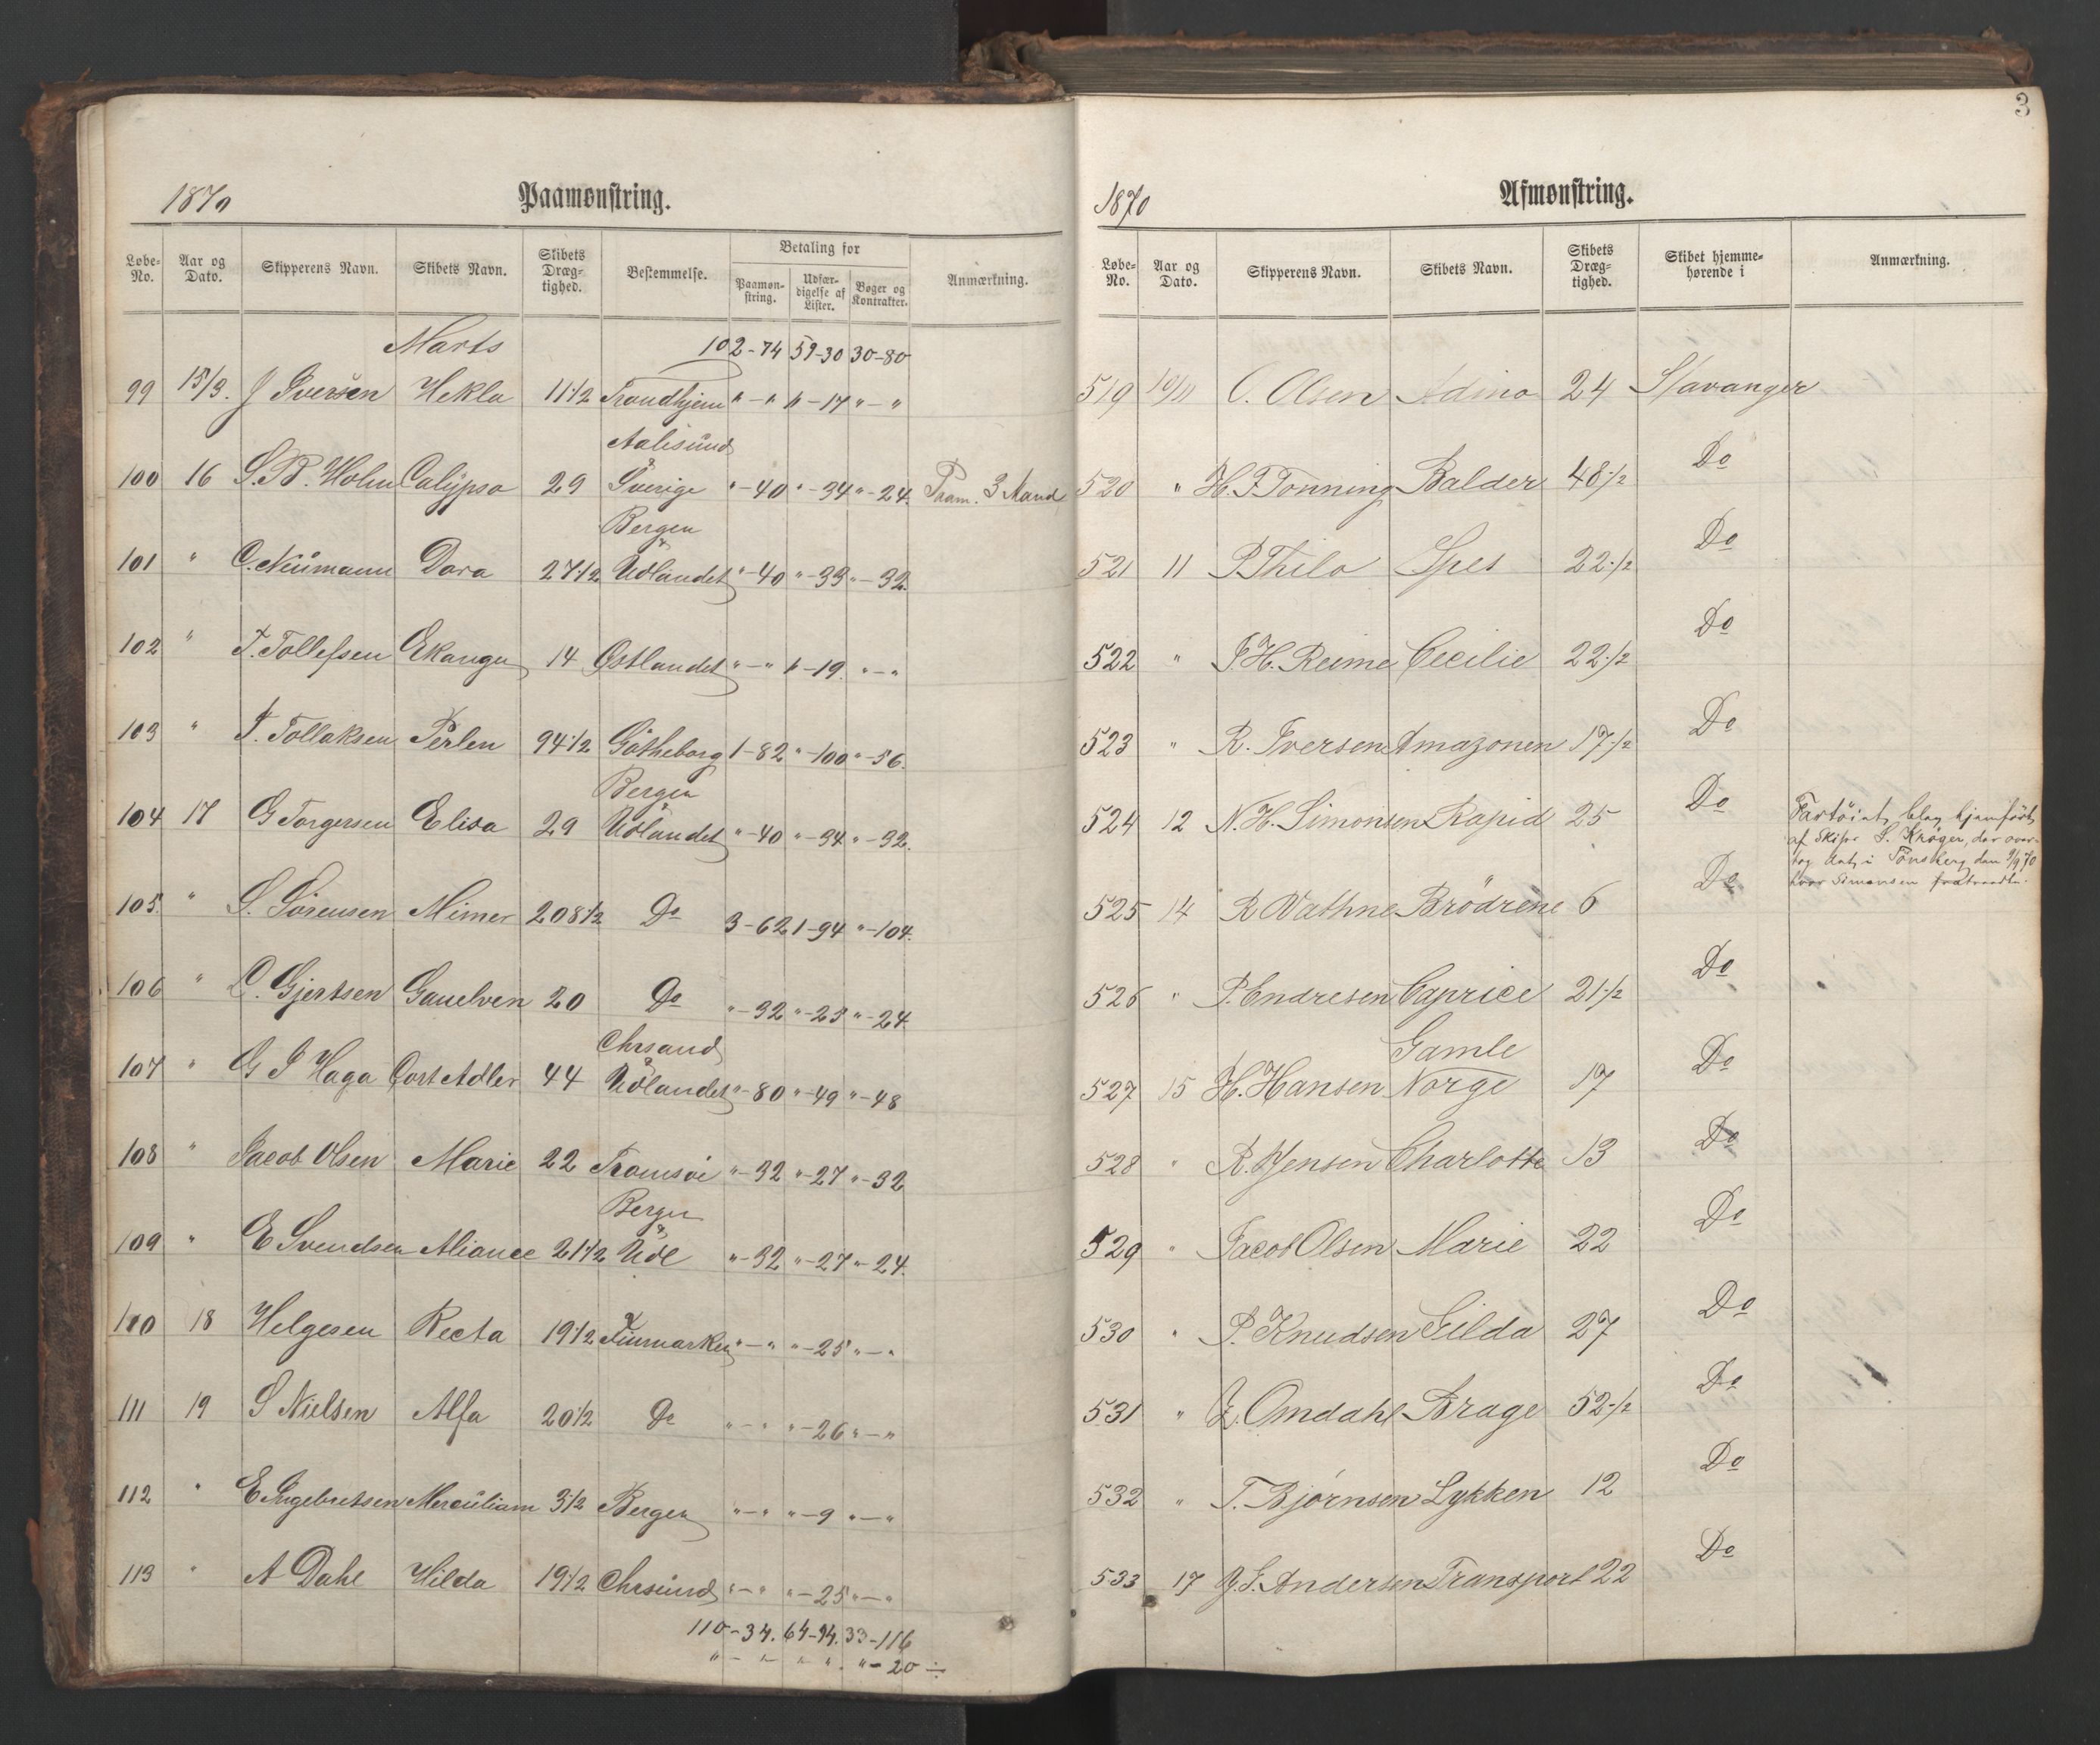 1870 Paamønstring.
Løbe-No. Aar og Dato. Skipperens Navn. Skibets Navn. Skibets Dræg-tighed. Bestemmelse. Betaling for Paamøn-string. Udfær-digelse af Lister. Bøger og Kontrakter. Anmærkning.
Marts 102-74 59-30 30-80
99 15/3. J Iversen Hekla 11 1/2 Trondhjem "-" "-17 "-"
Aalesund
100 16 S. B. Holm Calypso 29 & Sverige "-40 "-34 "-24 Pram. 3 Mand
Bergen
101 " C. Neumann Dora 27 1/2 & Udlandet "-40 "-33 "-32
102 " T. Tollefsen Ekanger 14 Østlandet "-" "-19. "-"
103 " T. Tollaksen Perlen 94 1/2 Götheborg 1-82 "-100 "-56.
Bergen
104 17 G Torgersen Elisa 29 & Udlandet "-40 "-34 "-32.
105. " S. Sörensen Mimer 208 1/2 Do 3-62 1-94 "-104.
106 " C. Gjertsen Gauelven 20 Do "-32 "-25 "-24
Chrsand
107 " G I Haga Cort Adler 44 & Udlandet "-80 "-49 "-48
108 " Jacob Olsen Marie 22 Tromsöe "-32 "-27 "-32
Bergen
109 " E Svendsen Aliance 21 1/2 & Udl "-32 "-27 "-24.
110 18 Helgesen Recta 19 1/2 Finmarken "-" "-25 "-"
111 19 S Nielsen Alfa 20 1/2 Do "-" "-26 "-"
112 " E Ingebretsen Merculiam 3 1/2 Bergen "-" "-9 "-"
113 " A Dahl Hilda 19 1/2 Chrsund "-" "-25 "-"
110-34. 64-94. 33-116
"-" "-" "-20 ÷
3
1870 Afmønstring.
Løbe-No. Aar og Dato. Skipperens Navn. Skibets Navn. Skibets Dræg-tighed. Skibet hjemme-hørende i Anmærkning.
519 10/11 C. Olsen Adina 24 Stavanger
520 " H. F Tonning Balder 48 1/2 Do
521 11 P Thilo Spes 22 1/2 Do
522 " I. H. Reime Cecilie 22 1/2 Do
523 " R. Iversen Amazonen 17 1/2 Do
524 12 N. H. Simonsen Rapid 25 Do Fartöiet blev hjemfört
af Skipr S. Kröger, der over-
tog det i Tönsberg den 9/9 70
hvor Simonsen fratraadte.
525 14 R Wathne Brödrene 6 Do
526 " P. Endresen Caprice 21 1/2 Do
527 15 H. Hansen Gamle Norge 17 Do
528 " R. Jensen Charlotte 13 Do
529 " Jacob Olsen Marie 22 Do
530 " P. Knudsen Gilda 27 Do
531 " Z. Omdahl Brage 52 1/2 Do
532 " T. Bjørnsen Lykken 12 Do
533 17 J. S. Andersen Transport 22 Do